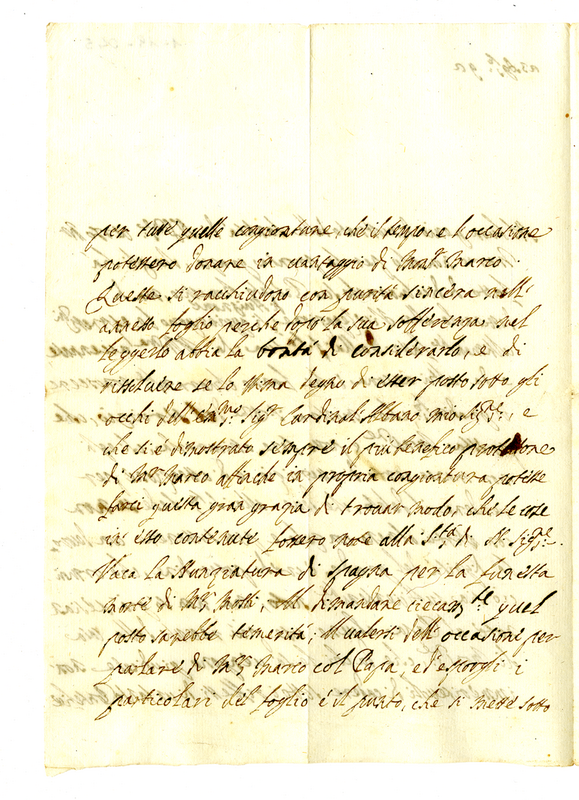 per tutte quelle congionture, che il tempo, e l'occasione
potessero donare in vantaggio di Mons.r Marco.
Queste si racchiudono con purità sincera nell'
annesso foglio perche dopo la sua sofferenza nel
leggerlo abbia la bontà di considerarlo, e di
rissolvere se lo stima degno di esser posto sotto gli
occhi dell' Em.mo Sig.r Cardinal Albano mio Sig.re, e
che si è dimostrato sempre il più benefico protettore
di M.r Marco affinche in propria congiontura potesse
farci questa gran grazia di trovar modo, che le cose
in esso contenute fossero note alla S.tà di N. Sig.re.
Vaca la Nunziatura di Spagna per la funesta
morte di M.r Motti, Il dimandare ciecam.te quel
posto sarebbe temerità; Il valersi dell' occasione per
parlare di M.r Marco col Papa, ed esporgli i
particolari del foglio è il punto, che si mette sotto